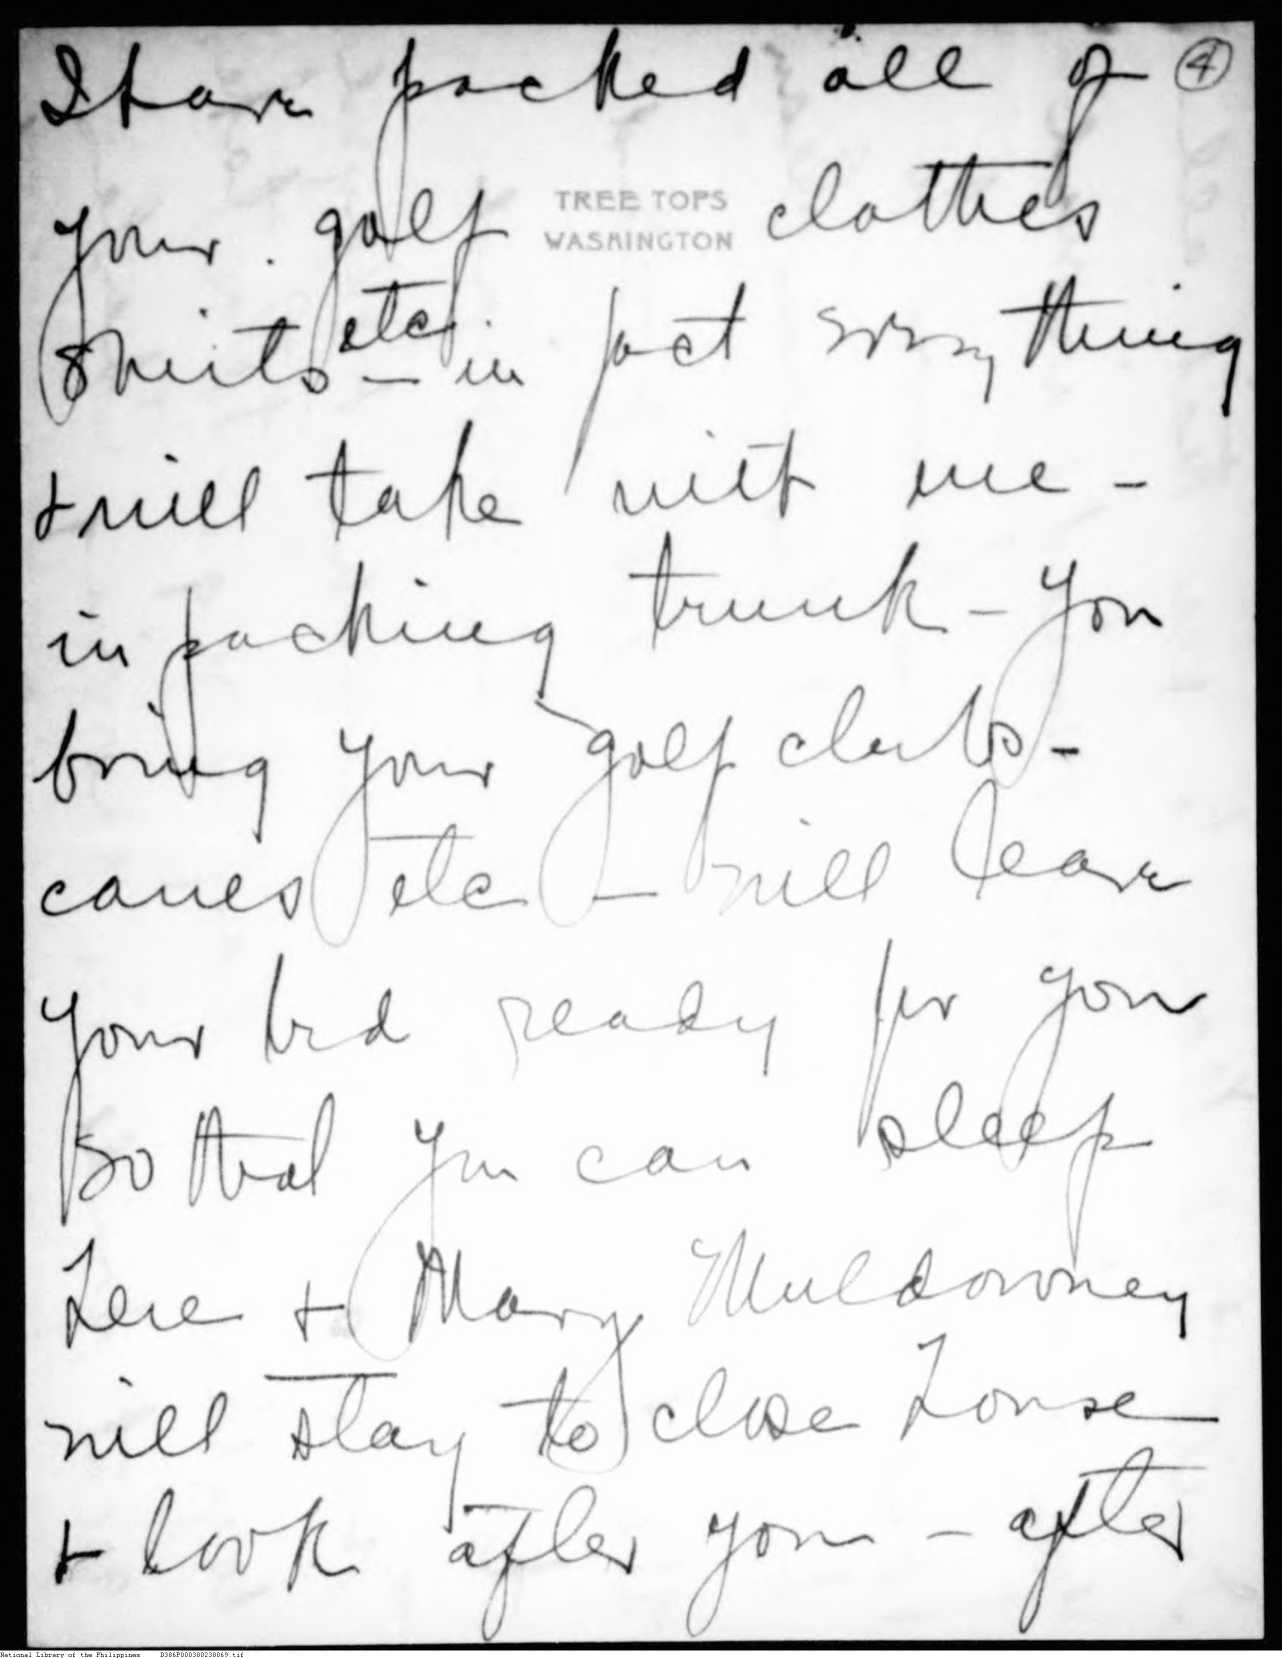 I have packed all of ④
TREE TOPS
WASHINGTON
your golf clothes
shirts etc. — in fact everything
& will take with me —
in packing trunk — you
bring your golf clubs —
canes etc — will leave
your bed ready for you
so that you can sleep
here & Mary Muldowney
will stay to close house
& look after you — after
National Library of the Philippines D386P000380238069.tif